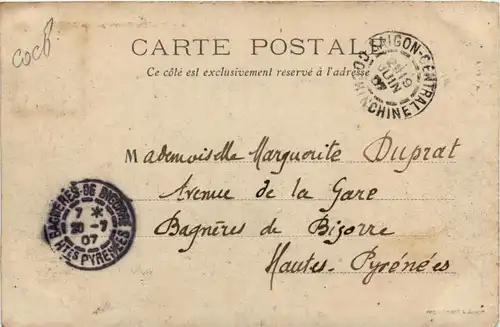 cocB
CARTE POSTALE
Ce côté est exclusivement reservé à l'adresse
SAIGON-CENTRAL
JUIN
COCHINCHINE
Mademoiselle Marguerite Duprat
Avenue de la Gare
Bagnères de Bigorre
Hautes-Pyrénées
BAGNÈRES-DE-BIGORRE
7 *
20-7
07
HTES PYRENEES